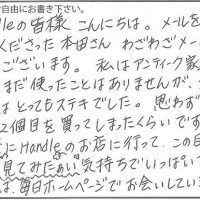 自由にお書き下さい。
leの皆様 こんにちは。メールを
くださった本田さん わざわざメー
ございます。 私はアンティーク家
まだ使ったことはありませんが、
はとってもステキでした。思わず
2個目を買ってしまったくらいです
Handleのお店に行って、この目
見てみたぁい気持ちでいっぱい
は毎日ホームページでお会いしてい